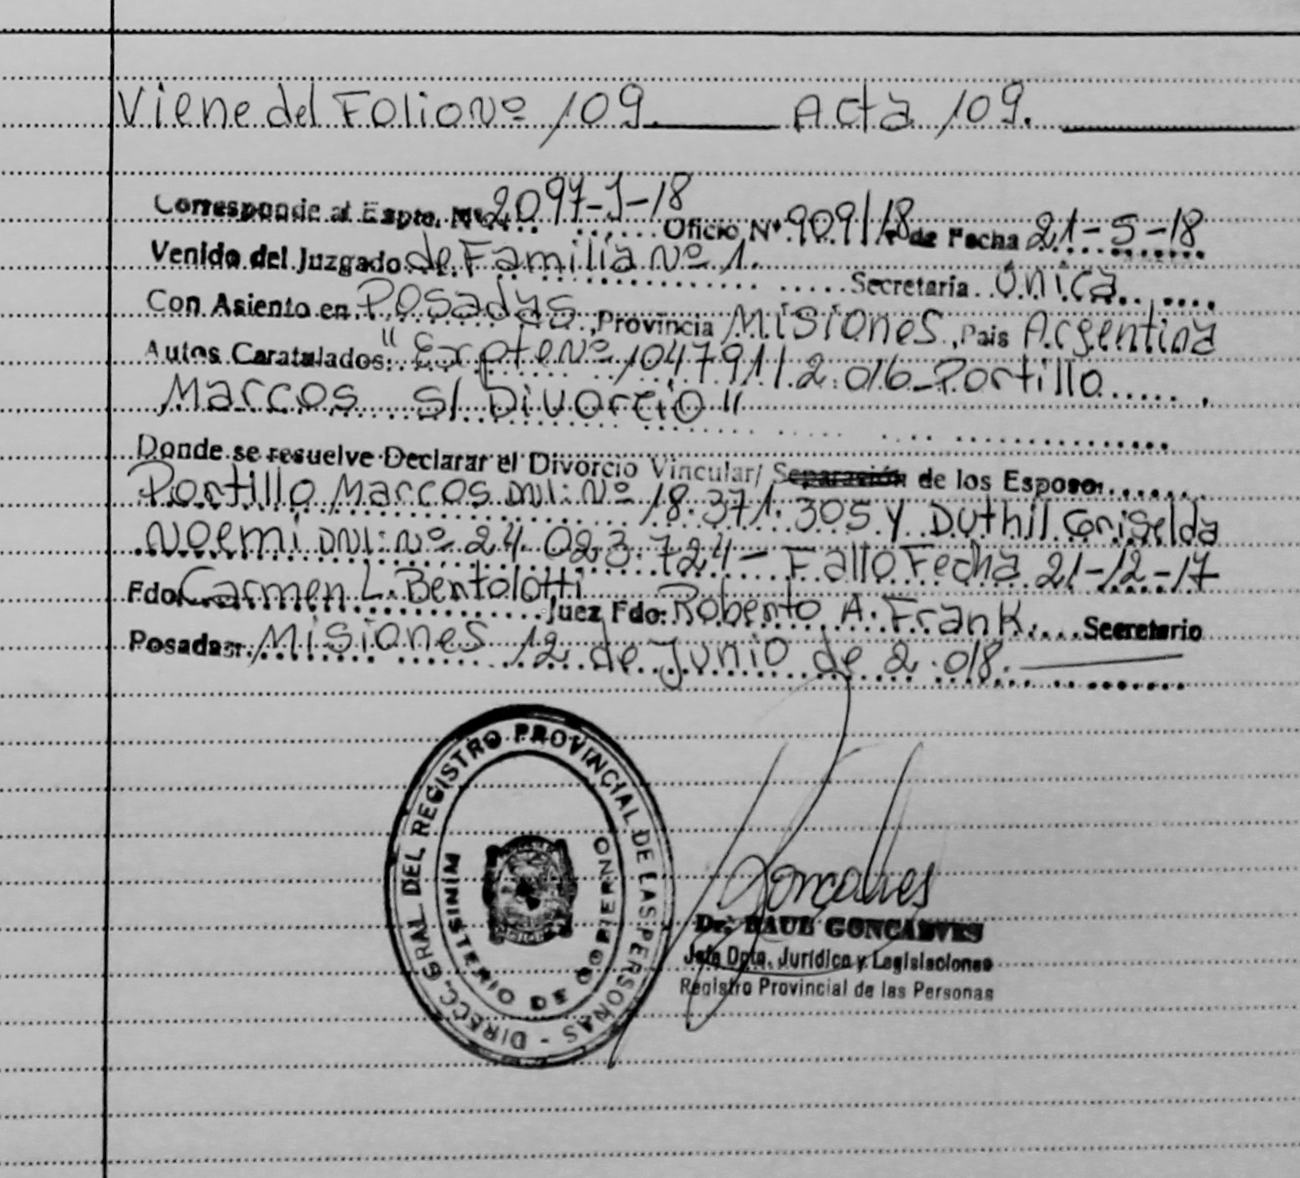 Viene del Folio Nº 109. Acta 109.
Corresponde al Expte. Nº 2097-J-18 Oficio Nº 909/18 de Fecha 21-5-18
Venido del Juzgado de Familia Nº 1. Secretaria Única
Con Asiento en Posadas, Provincia Misiones, Pais Argentina
Autos Caratalados: "Expte Nº 104791/2.016-Portillo
Marcos S/ Divorcio"
Donde se resuelve Declarar el Divorcio Vincular/ Separación de los Esposos
Portillo Marcos DNI: Nº 18.371.305 y Duthil Griselda
Noemi DNI: Nº 24.023.724- Fallo Fecha 21-12-17
Fdo Carmen L. Bentolotti Juez Fdo: Roberto A. Frank. Secretario
Posadas: Misiones 12 de Junio de 2.018.
DIRECC. GRAL DEL REGISTRO PROVINCIAL DE LAS PERSONAS -
MINISTERIO DE GOBIERNO
Goncalves
Dr. RAUL GONCALVES
Jefe Dpto. Jurídico y Legislaciones
Registro Provincial de las Personas